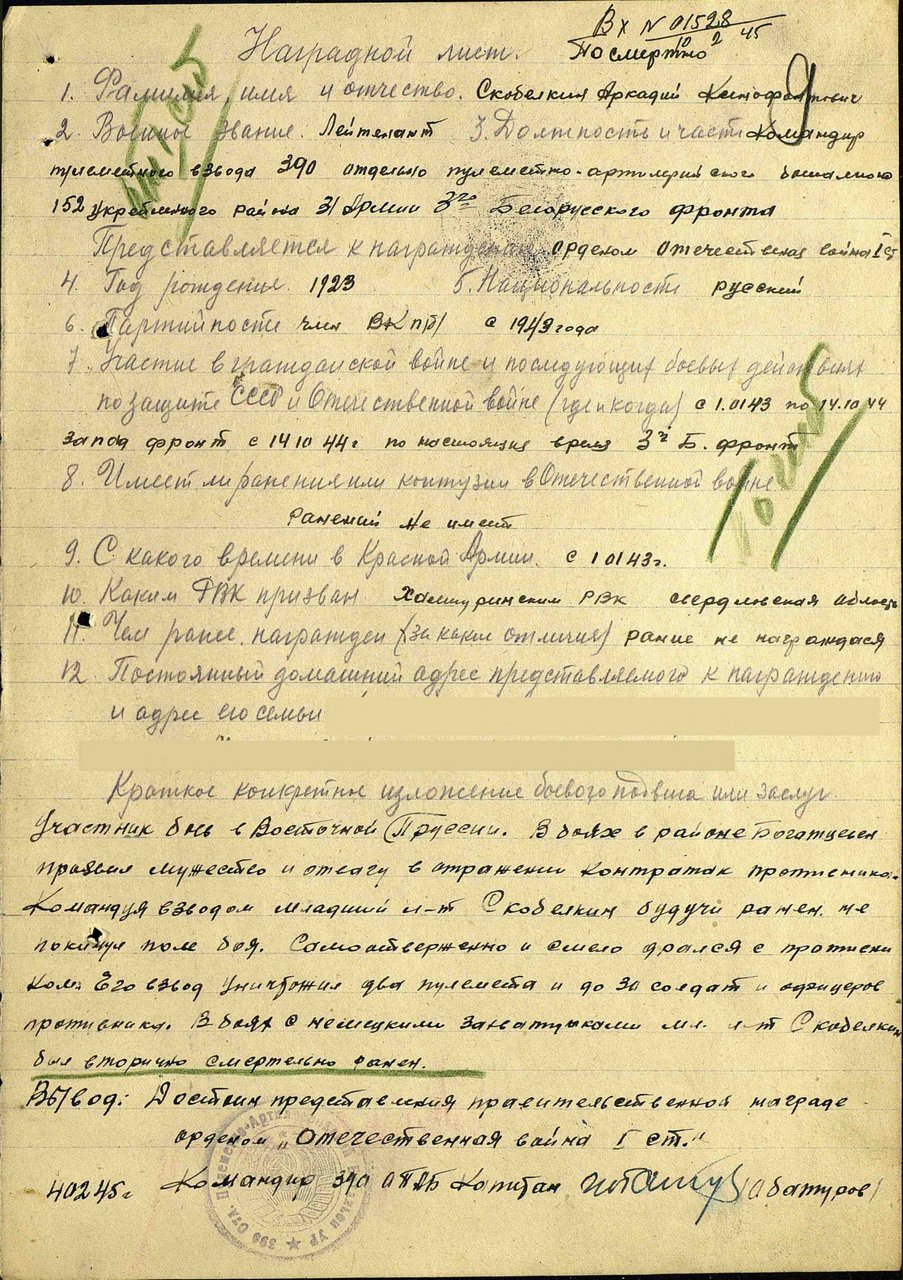 Вх N 01528
10 2 45
Наградной лист. Посмертно
9
1. Фамилия, имя и отчество. Скобелкин Аркадий Ксенофонтович
2. Военное звание. Лейтенант 3. Должность и часть командир
пулеметного взвода 390 отдельно пулеметно-артилерийского баталиона
152 укрепленного района 31 Армии 3го Белорусского фронта
Представляется к награждению орденом отечественная война I ст
4. Год рождения 1923 5. Национальность русский
6. Партийность член ВКП/б/ с 1943 года
7. Участие в гражданской войне и последующих боевых действиях
по защите СССР и Отечественной войне (где и когда) с 1.01 43 по 14.10 44
Запад фронт с 14 10 44 г по настоящие время 3й Б. фронт
8. Имеет ли ранения или контузии в Отечественной войне
ранений не имеет
9. С какого времени в Красной Армии. с 1 01 43 г.
10. Каким РВК призван РВК свердловская область
11. Чем ранее награжден (за какие отличия) рание не награждася
12. Постоянный домашний адрес представляемого к награждению
и адрес его семьи
Краткое конкретное изложение боевого подвига или заслуг
Участник боев в Восточной Пруссии. В боях в районе
проявил мужество и отвагу в отражении контратак противника.
Командуя взводом младший л-т Скобелкин будучи ранен не
покинул поле боя. Самоотверженно и смело дрался с противни
ком. Его взвод уничтожил два пулемета и до 30 солдат и офицеров
противника. В боях с немецкими захватчиками мл. л-т Скобелкин
был вторично смертельно ранен.
Вывод: Достоин представления правительственной награде
орденом "Отечественная война I ст."
4 02 45 г Командир 390 ОПАБ Капитан /Абатуров/